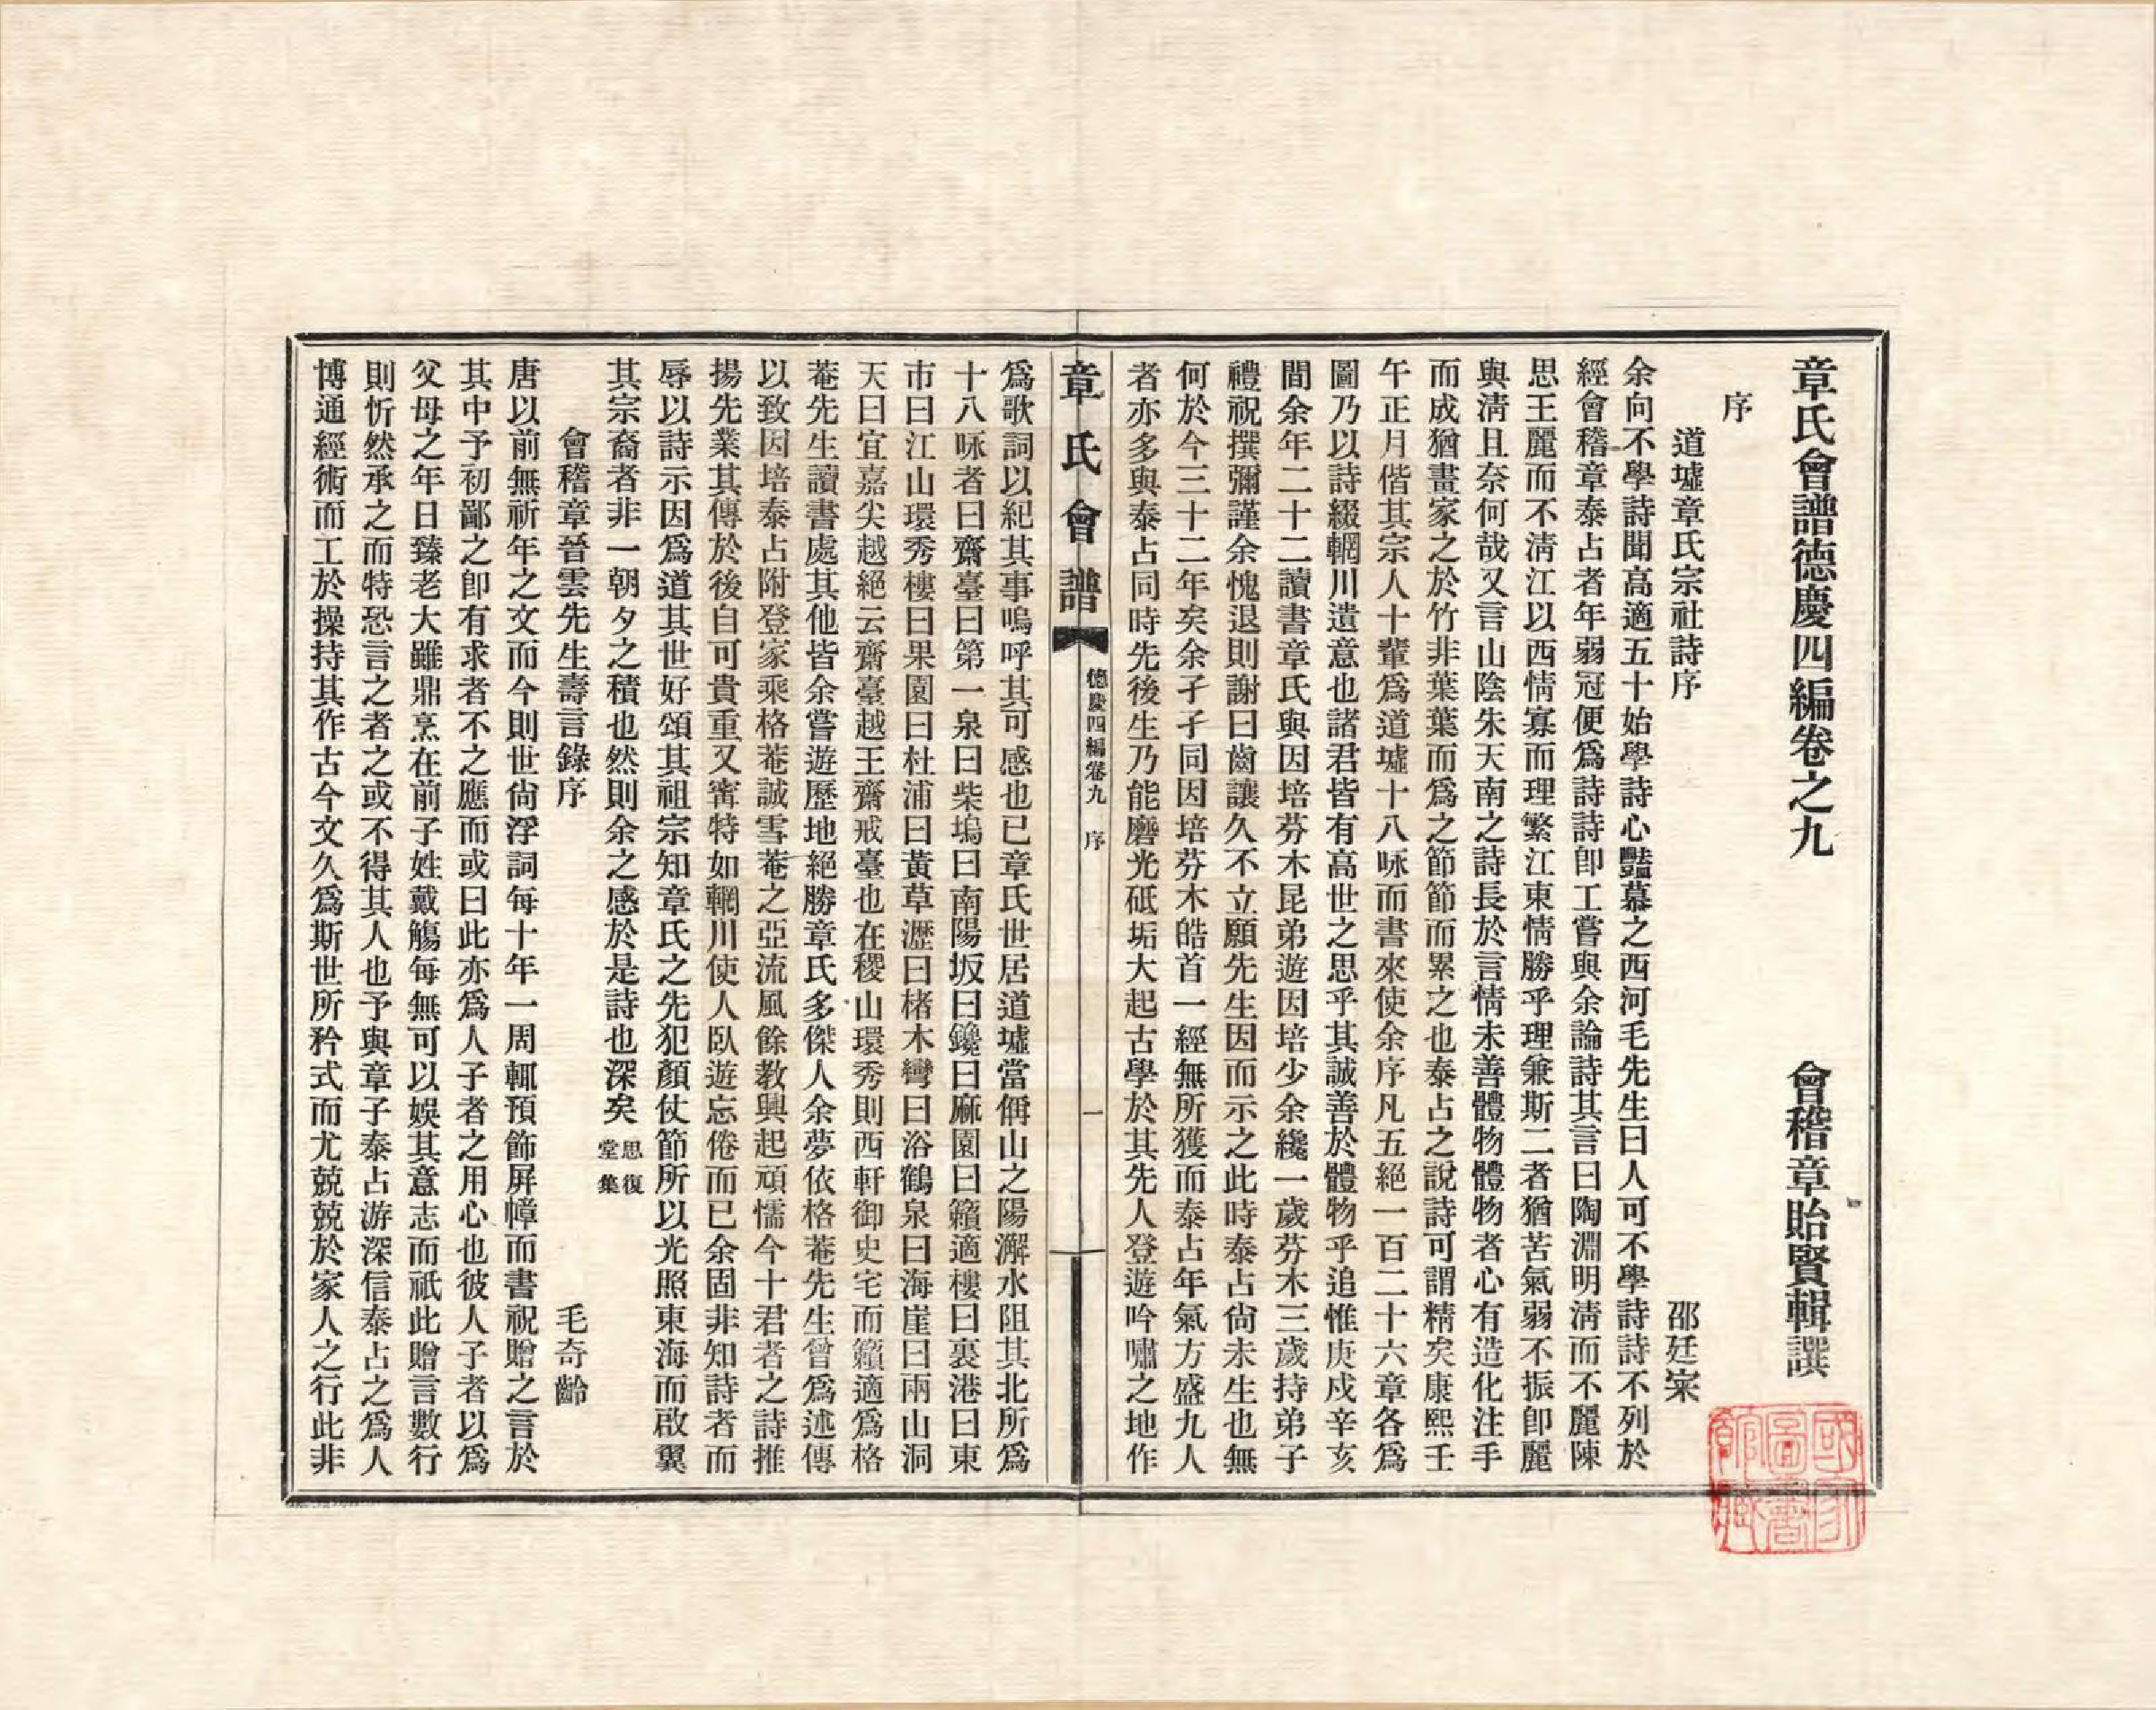 章氏會譜德慶四編卷之九
會稽章貽賢輯譔
序
道墟章氏宗社詩序
邵廷寀
余向不學詩聞高適五十始學詩心豔慕之西河毛先生曰人可不學詩詩不列於
經會稽章泰占者年弱冠便爲詩詩卽工嘗與余論詩其言曰陶淵明淸而不麗陳
思王麗而不淸江以西情寡而理繁江東情勝乎理兼斯二者猶苦氣弱不振卽麗
與淸且奈何哉又言山陰朱天南之詩長於言情未善體物體物者心有造化注手
而成猶畫家之於竹非葉葉而爲之節節而累之也泰占之說詩可謂精矣康熙壬
午正月偕其宗人十輩爲道墟十八咏而書來使余序凡五絕一百二十六章各爲
圖乃以詩綴輞川遺意也諸君皆有高世之思乎其誠善於體物乎追惟庚戌辛亥
間余年二十二讀書章氏與因培芬木昆弟遊因培少余纔一歲芬木三歲持弟子
禮祝撰彌謹余愧退則謝曰齒讓久不立願先生因而示之此時泰占尙未生也無
何於今三十二年矣余孑孑同因培芬木皓首一經無所獲而泰占年氣方盛九人
者亦多與泰占同時先後生乃能磨光砥垢大起古學於其先人登遊吟嘯之地作
章氏會譜
德慶四編卷九 序
一
爲歌詞以紀其事嗚呼其可感也已章氏世居道墟當偁山之陽澥水阻其北所爲
十八咏者曰齋臺曰第一泉曰柴塢曰南陽坂曰鑱曰麻園曰籟適樓曰裏港曰東
市曰江山環秀樓曰果園曰杜浦曰黃草瀝曰楮木彎曰浴鶴泉曰海崖曰兩山洞
天曰宜嘉尖越絕云齋臺越王齋戒臺也在稷山環秀則西軒御史宅而籟適爲格
菴先生讀書處其他皆余嘗遊歷地絕勝章氏多傑人余夢依格菴先生曾爲述傳
以致因培泰占附登家乘格菴誠雪菴之亞流風餘敎興起頑懦今十君者之詩推
揚先業其傳於後自可貴重又寗特如輞川使人臥遊忘倦而已余固非知詩者而
辱以詩示因爲道其世好頌其祖宗知章氏之先犯顏仗節所以光照東海而啟翼
其宗裔者非一朝夕之積也然則余之感於是詩也深矣思復堂集
會稽章晉雲先生壽言錄序
毛奇齡
唐以前無祈年之文而今則世尙浮詞每十年一周輒預飾屛幛而書祝贈之言於
其中予初鄙之卽有求者不之應而或曰此亦爲人子者之用心也彼人子者以爲
父母之年日臻老大雖鼎烹在前子姓戴觴每無可以娛其意志而祇此贈言數行
則忻然承之而特恐言之者之或不得其人也予與章子泰占游深信泰占之爲人
博通經術而工於操持其作古今文久爲斯世所矜式而尤兢兢於家人之行此非